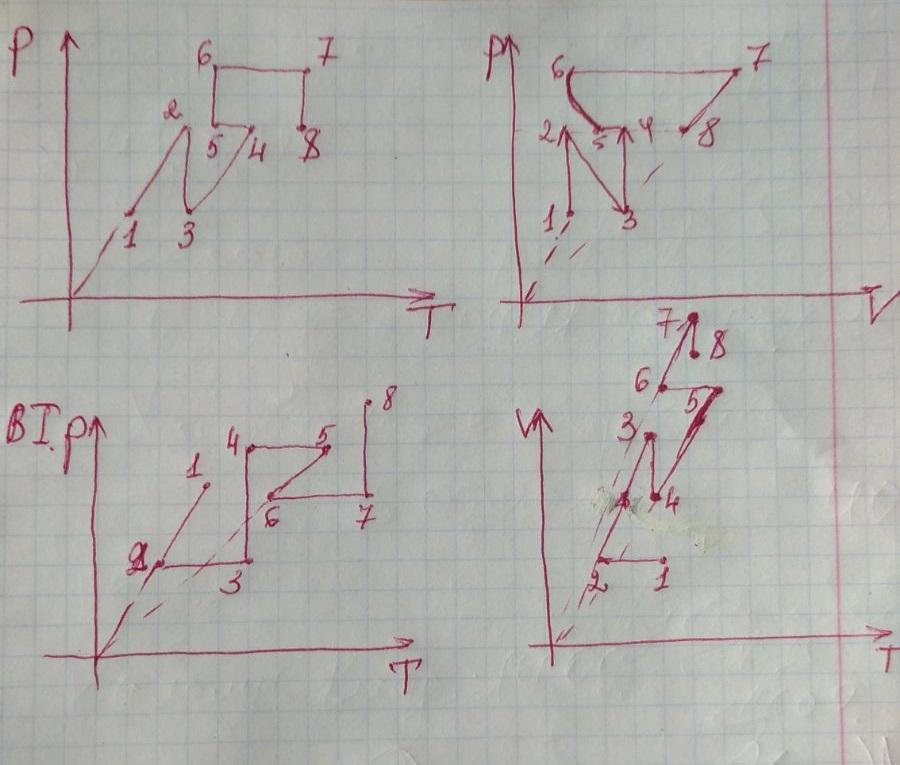 P
6
7
2
5
4
8
1
3
T
P
6
7
2
5
4
8
1
3
V
ВI.
P
1
4
5
8
2
3
6
7
T
V
7
8
6
5
3
4
2
1
T